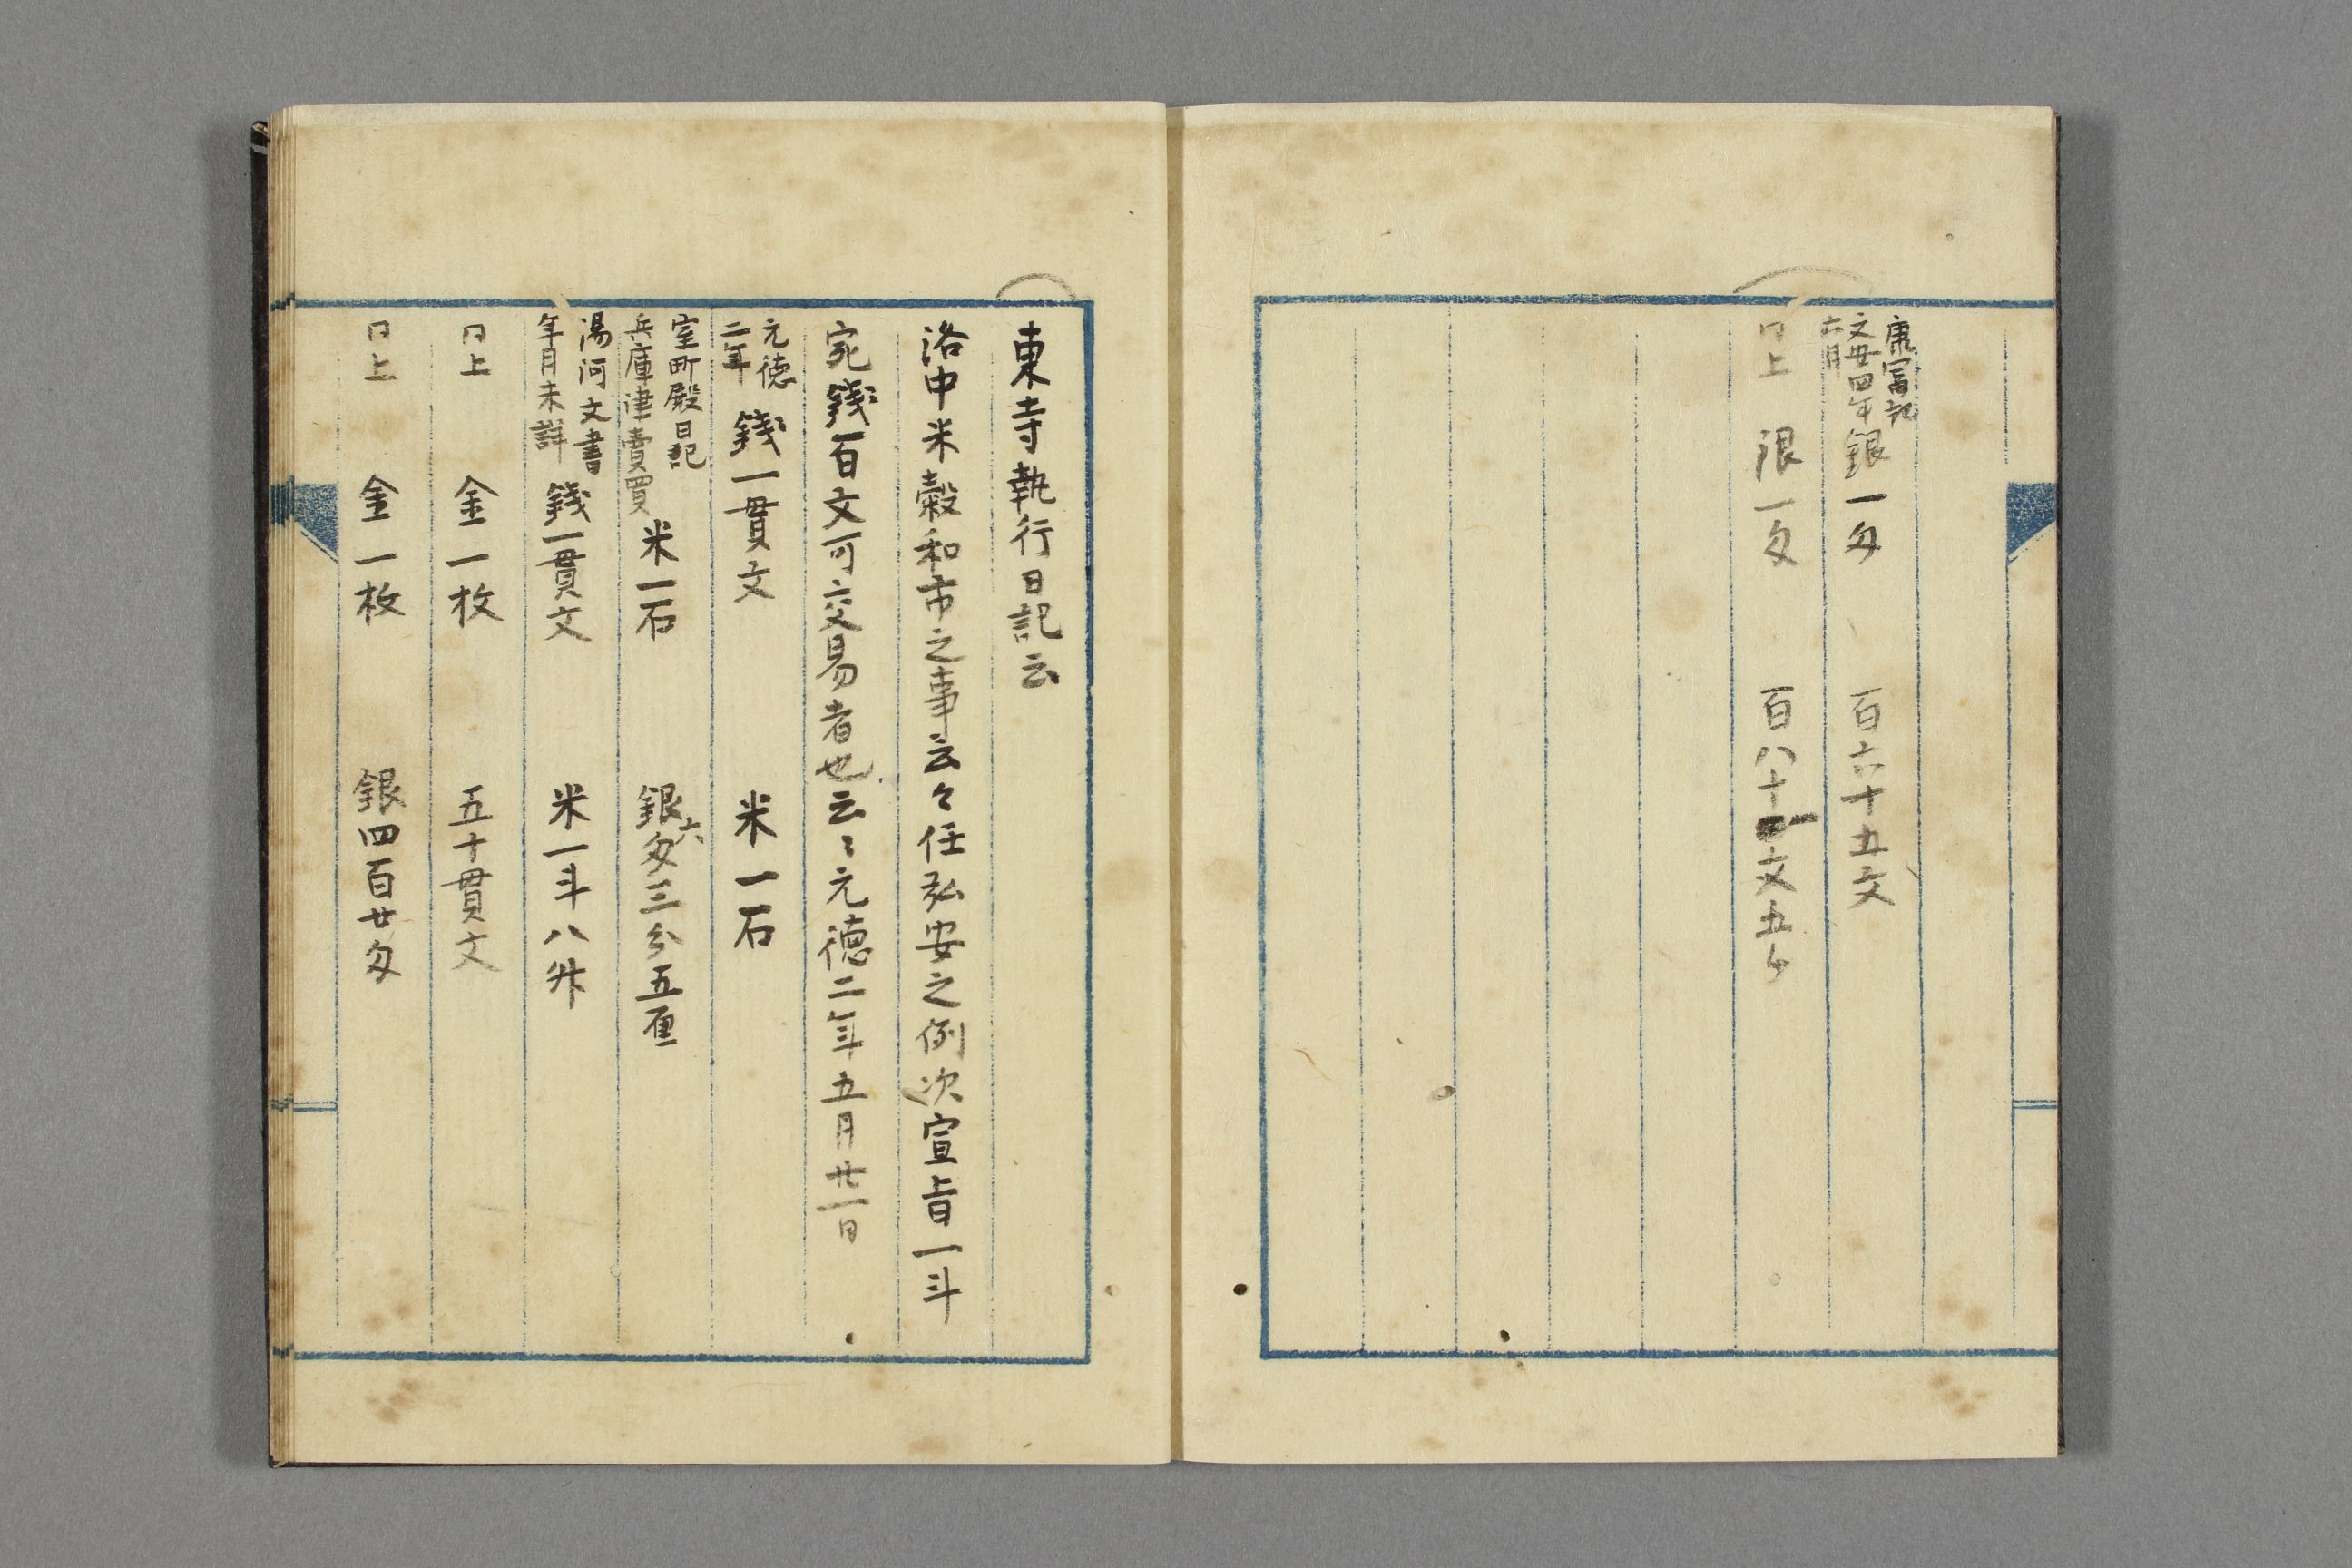 康冨記
文安四年
六月
銀一匁 百六十五文
仝上 銀一匁 百八十一文五分
東寺執行日記云
洛中米穀和市之事云々任弘安之例次宣旨一斗
宛錢百文可交易者也云々元徳二年五月廿一日
元徳
二年
錢一貫文 米一石
室町殿日記
兵庫津賣買
米一石 銀六匁三分五厘
湯河文書
年月未詳
錢一貫文 米一斗八升
仝上 金一枚 五十貫文
仝上 金一枚 銀四百廿匁